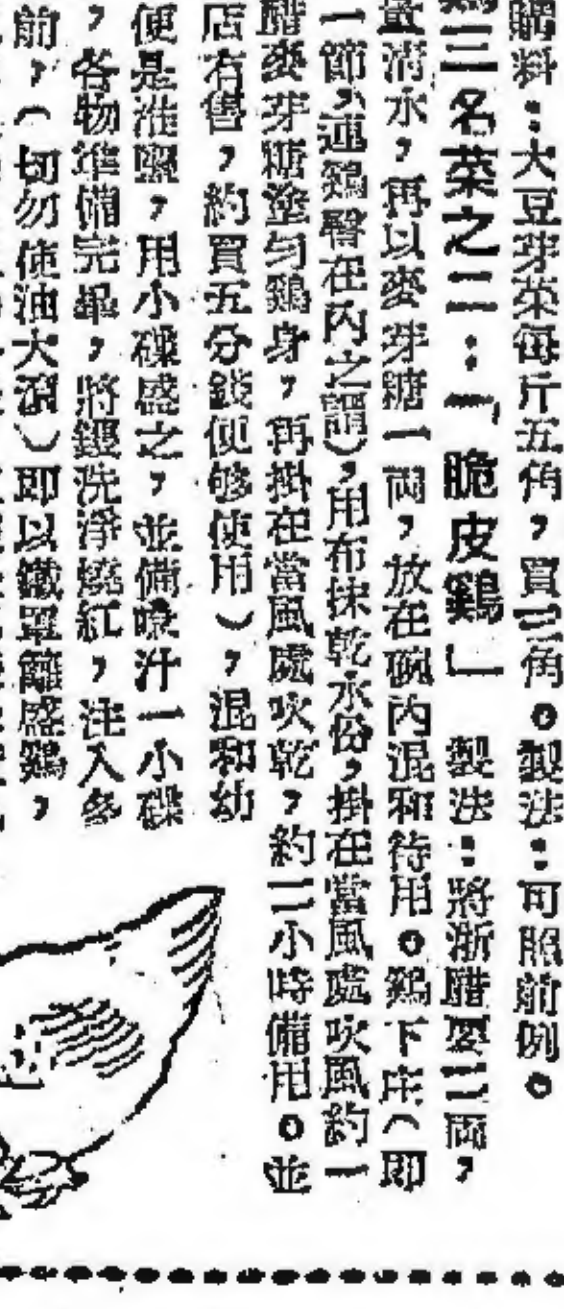 購料：大豆芽菜每斤五角，買三角。製法：可照前例。
三名菜之二：「脆皮鷄」　製法：將浙醋要二兩，
清水，再以麥芽糖一兩，放在碗內混和待用。鷄下庄（即
一節，連鷄臀在內之謂），用布抹乾水份，掛在當風處吹風約一
醋麥芽糖塗勻鷄身，再掛在當風處吹乾，約二小時備用。並
店有售，約買五分錢便够使用），混和幼
便是淮鹽，用小碟盛之，並備喼汁一小碟
，各物準備完畢，將鑊洗淨燒紅，注入多
前，（切勿使油大滾）即以鐵罩籬盛鷄，